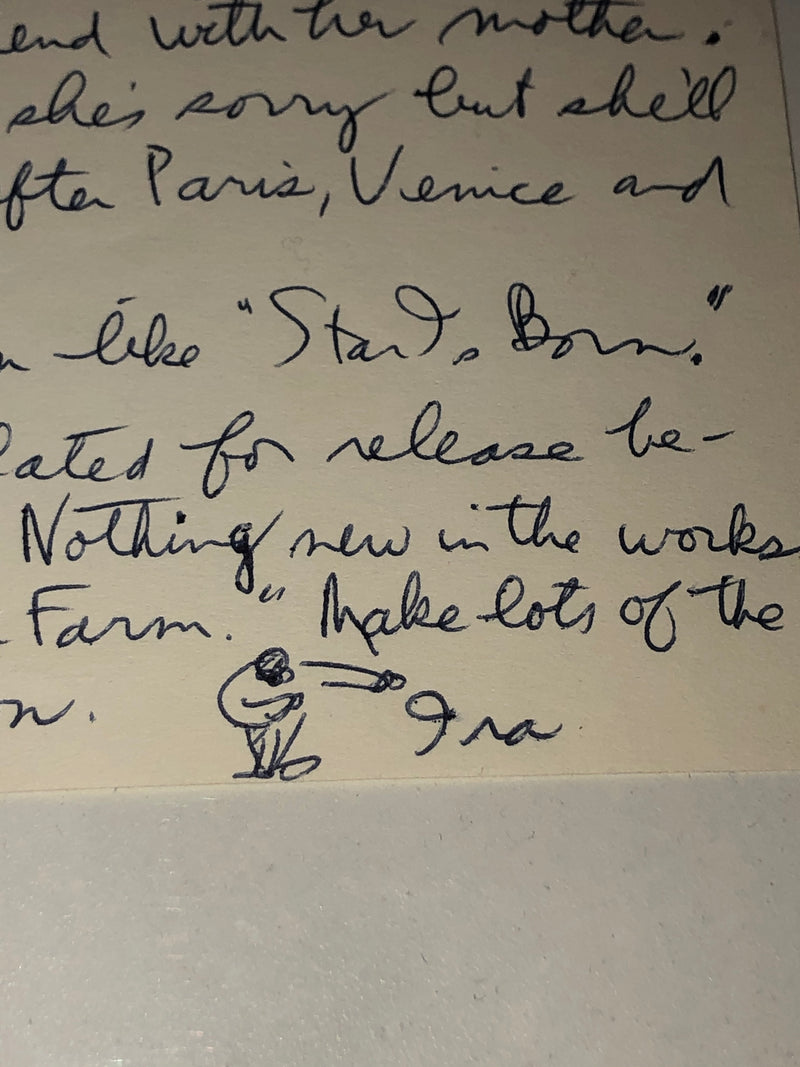 end with her mother.
she's sorry but she'll
fter Paris, Venice and
n like "Star Is Born."
lated for release be-
Nothing new in the works
Farm." Make lots of the
n. Ira